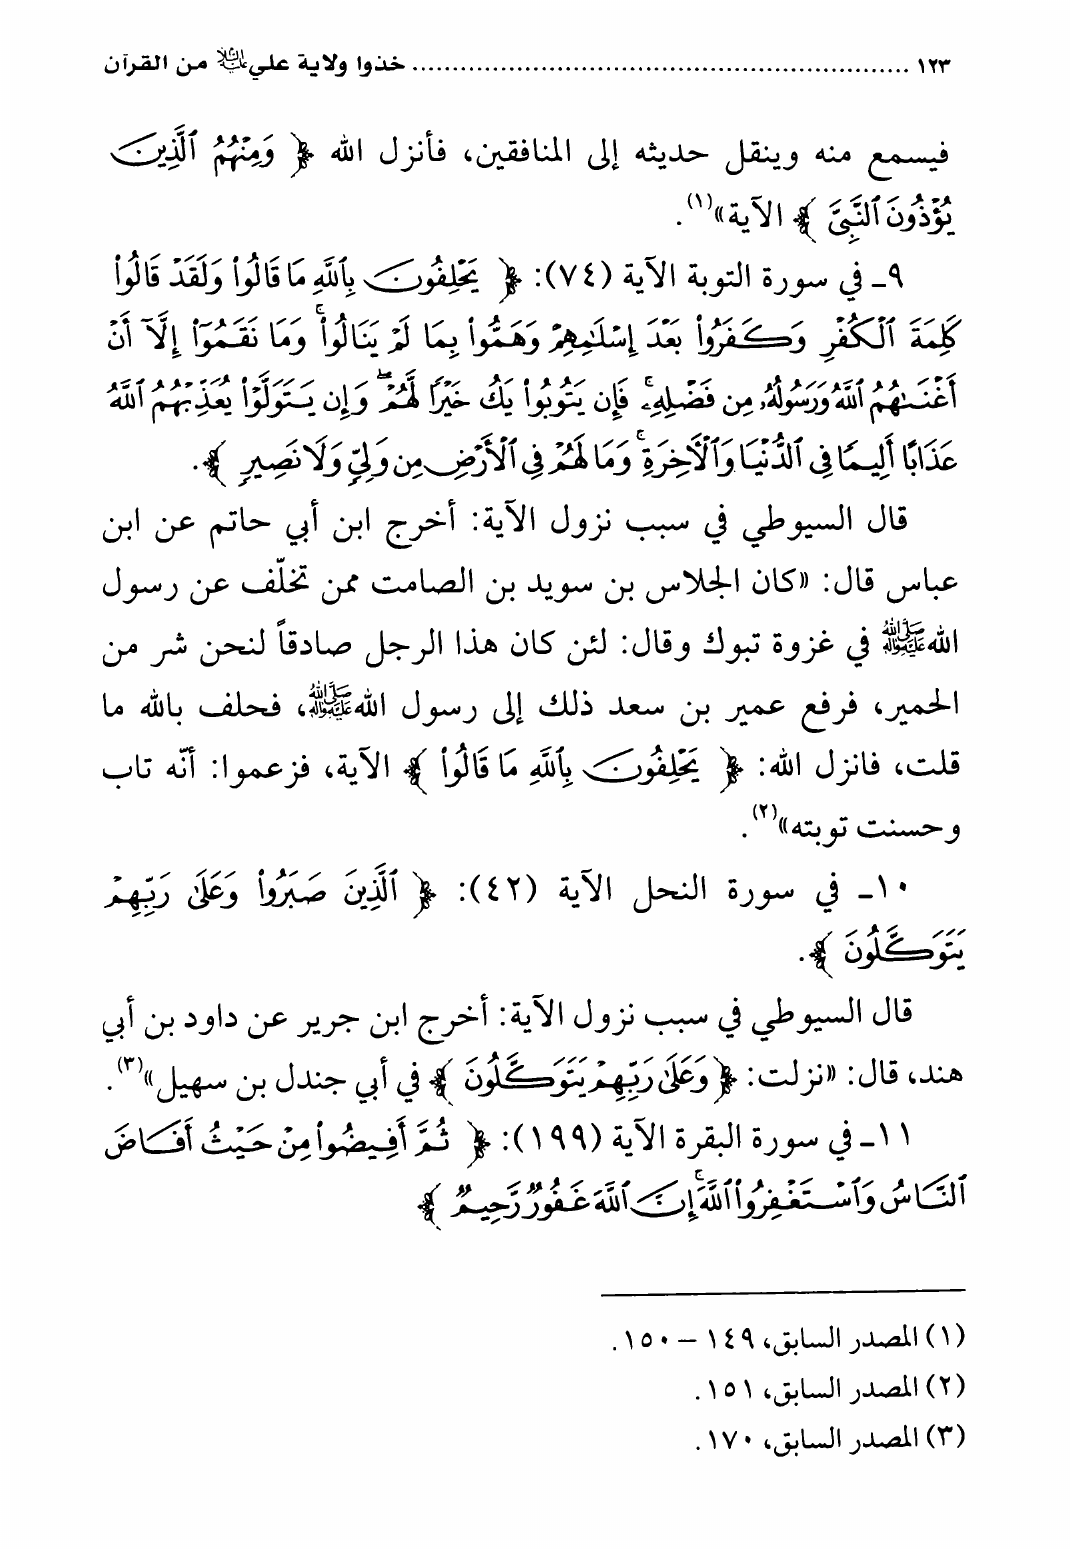 ١٢٣ .............................................................. خذوا ولاية علي عليه السلام من القرآن
فيسمع منه وينقل حديثه إلى المنافقين، فأنزل الله ﴿ وَمِنْهُمُ ٱلَّذِينَ
يُؤْذُونَ ٱلنَّبِىَّ ﴾ الآية»(١).
٩ـ في سورة التوبة الآية (٧٤): ﴿ يَحْلِفُونَ بِٱللَّهِ مَا قَالُوا۟ وَلَقَدْ قَالُوا۟
كَلِمَةَ ٱلْكُفْرِ وَكَفَرُوا۟ بَعْدَ إِسْلَٰمِهِمْ وَهَمُّوا۟ بِمَا لَمْ يَنَالُوا۟ ۚ وَمَا نَقَمُوٓا۟ إِلَّآ أَنْ
أَغْنَىٰهُمُ ٱللَّهُ وَرَسُولُهُۥ مِن فَضْلِهِۦ ۚ فَإِن يَتُوبُوا۟ يَكُ خَيْرًا لَّهُمْ ۖ وَإِن يَتَوَلَّوْا۟ يُعَذِّبْهُمُ ٱللَّهُ
عَذَابًا أَلِيمًا فِى ٱلدُّنْيَا وَٱلْآخِرَةِ ۚ وَمَا لَهُمْ فِى ٱلْأَرْضِ مِن وَلِىٍّ وَلَا نَصِيرٍ ﴾.
قال السيوطي في سبب نزول الآية: أخرج ابن أبي حاتم عن ابن
عباس قال: «كان الجلاس بن سويد بن الصامت ممن تخلّف عن رسول
الله ﷺ في غزوة تبوك وقال: لئن كان هذا الرجل صادقاً لنحن شر من
الحمير، فرفع عمير بن سعد ذلك إلى رسول الله ﷺ، فحلف بالله ما
قلت، فانزل الله: ﴿ يَحْلِفُونَ بِٱللَّهِ مَا قَالُوا۟ ﴾ الآية، فزعموا: أنّه تاب
وحسنت توبته»(٢).
١٠ـ في سورة النحل الآية (٤٢): ﴿ ٱلَّذِينَ صَبَرُوا۟ وَعَلَىٰ رَبِّهِمْ
يَتَوَكَّلُونَ ﴾.
قال السيوطي في سبب نزول الآية: أخرج ابن جرير عن داود بن أبي
هند، قال: «نزلت: ﴿ وَعَلَىٰ رَبِّهِمْ يَتَوَكَّلُونَ ﴾ في أبي جندل بن سهيل»(٣).
١١ـ في سورة البقرة الآية (١٩٩): ﴿ ثُمَّ أَفِيضُوا۟ مِنْ حَيْثُ أَفَاضَ
ٱلنَّاسُ وَٱسْتَغْفِرُوا۟ ٱللَّهَ ۚ إِنَّ ٱللَّهَ غَفُورٌ رَّحِيمٌ ﴾
(١) المصدر السابق، ١٤٩ – ١٥٠.
(٢) المصدر السابق، ١٥١.
(٣) المصدر السابق، ١٧٠.